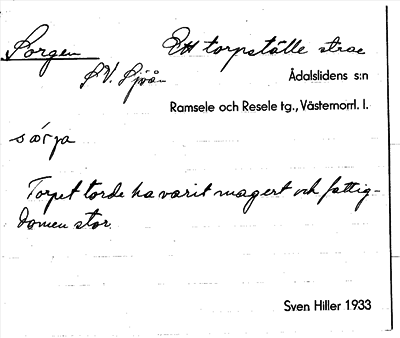 Sorgen Ett torpställe
S.V. Sjöån Ådalslidens s:n
Ramsele och Resele tg., Västernorrl. l.
Torpet torde ha varit magert och fattig-
domen stor.
Sven Hiller 1933